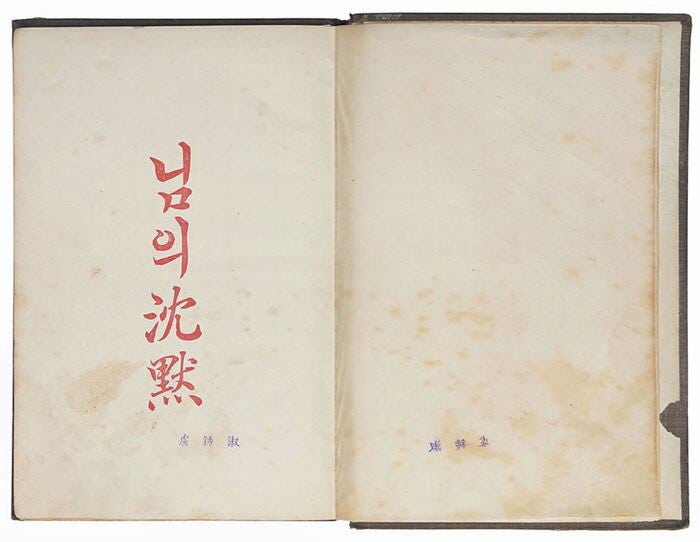 님의沈默
淑